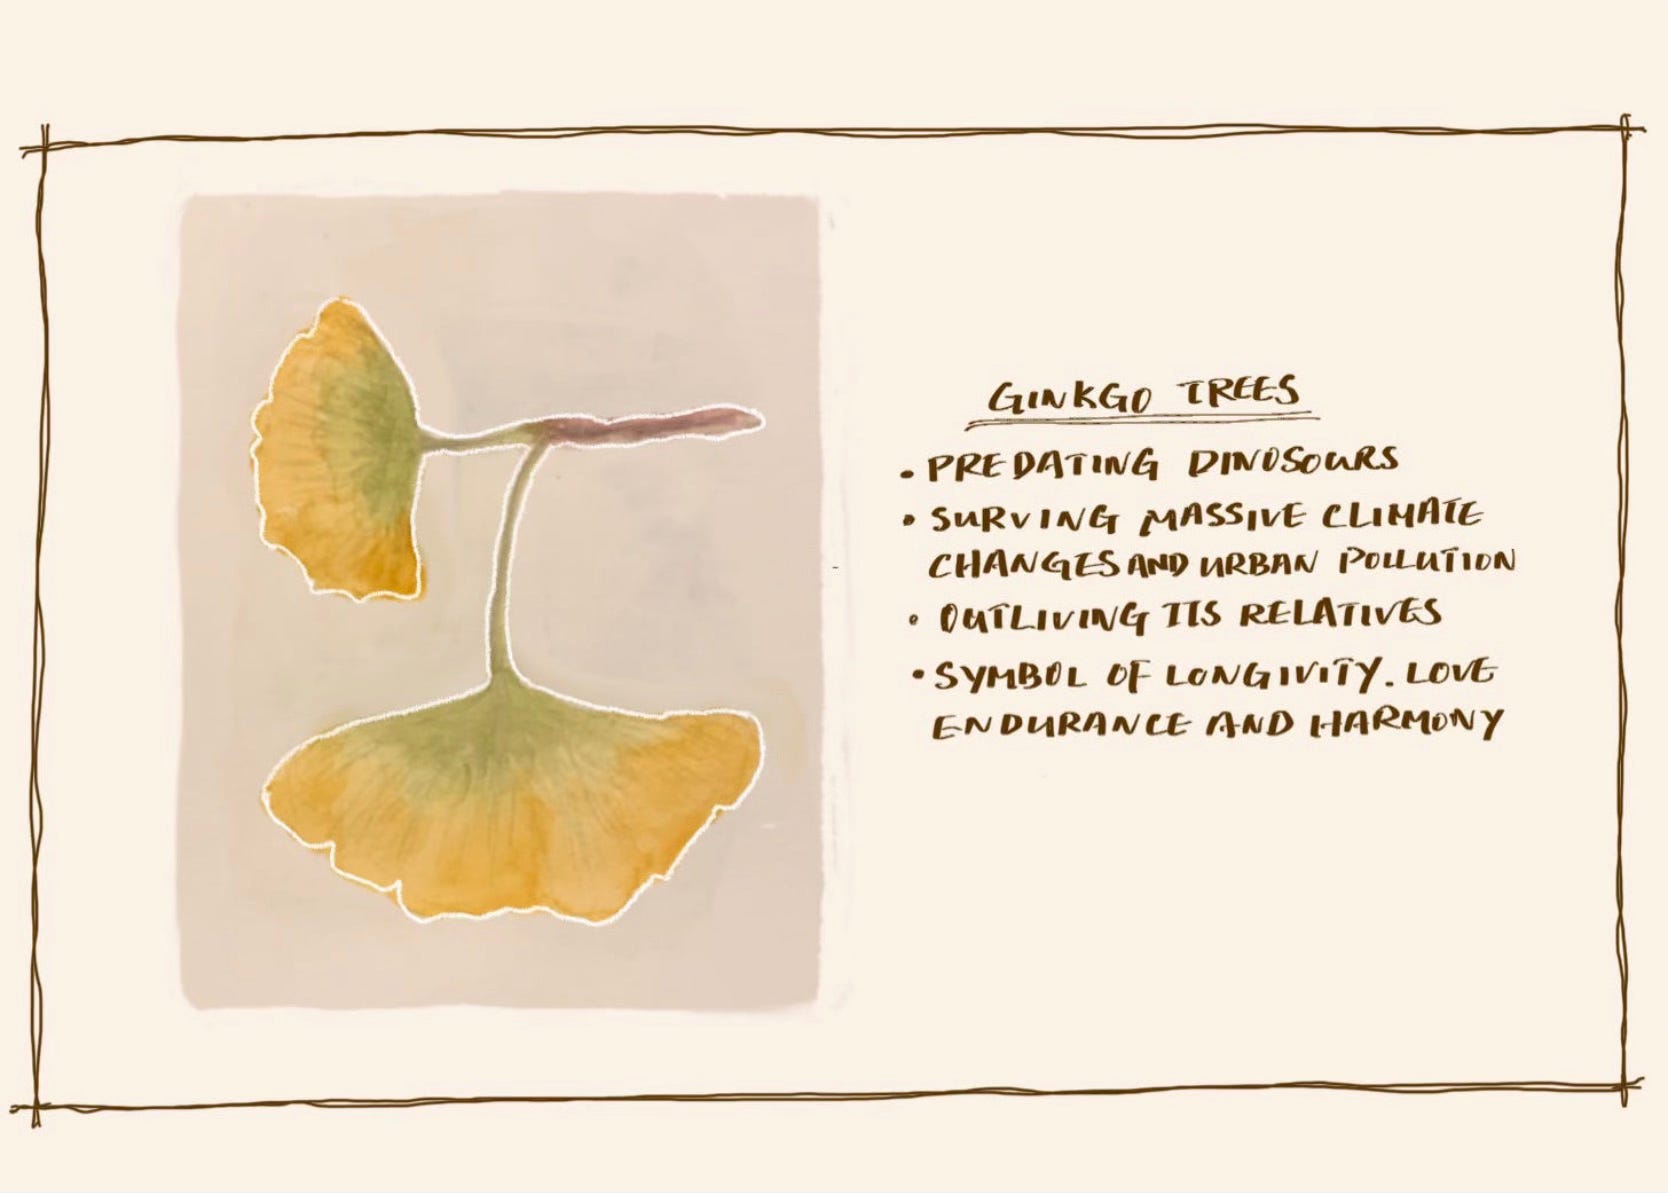 GINKGO TREES
• PREDATING DINOSOURS
• SURVING MASSIVE CLIMATE
CHANGES AND URBAN POLLUTION
• OUTLIVING ITS RELATIVES
• SYMBOL OF LONGIVITY. LOVE
ENDURANCE AND HARMONY